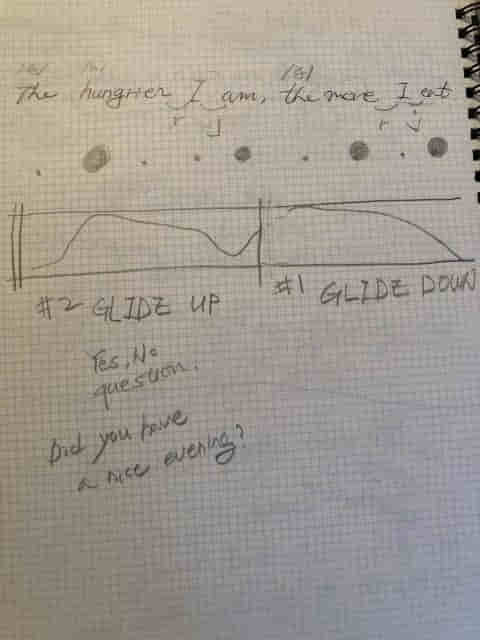 /ə/ /ʌ/ /ə/
The hungrier I am, the more I eat
r j r j
#2 GLIDE UP #1 GLIDE DOWN
Yes, No
question.
Did you have
a nice evening?